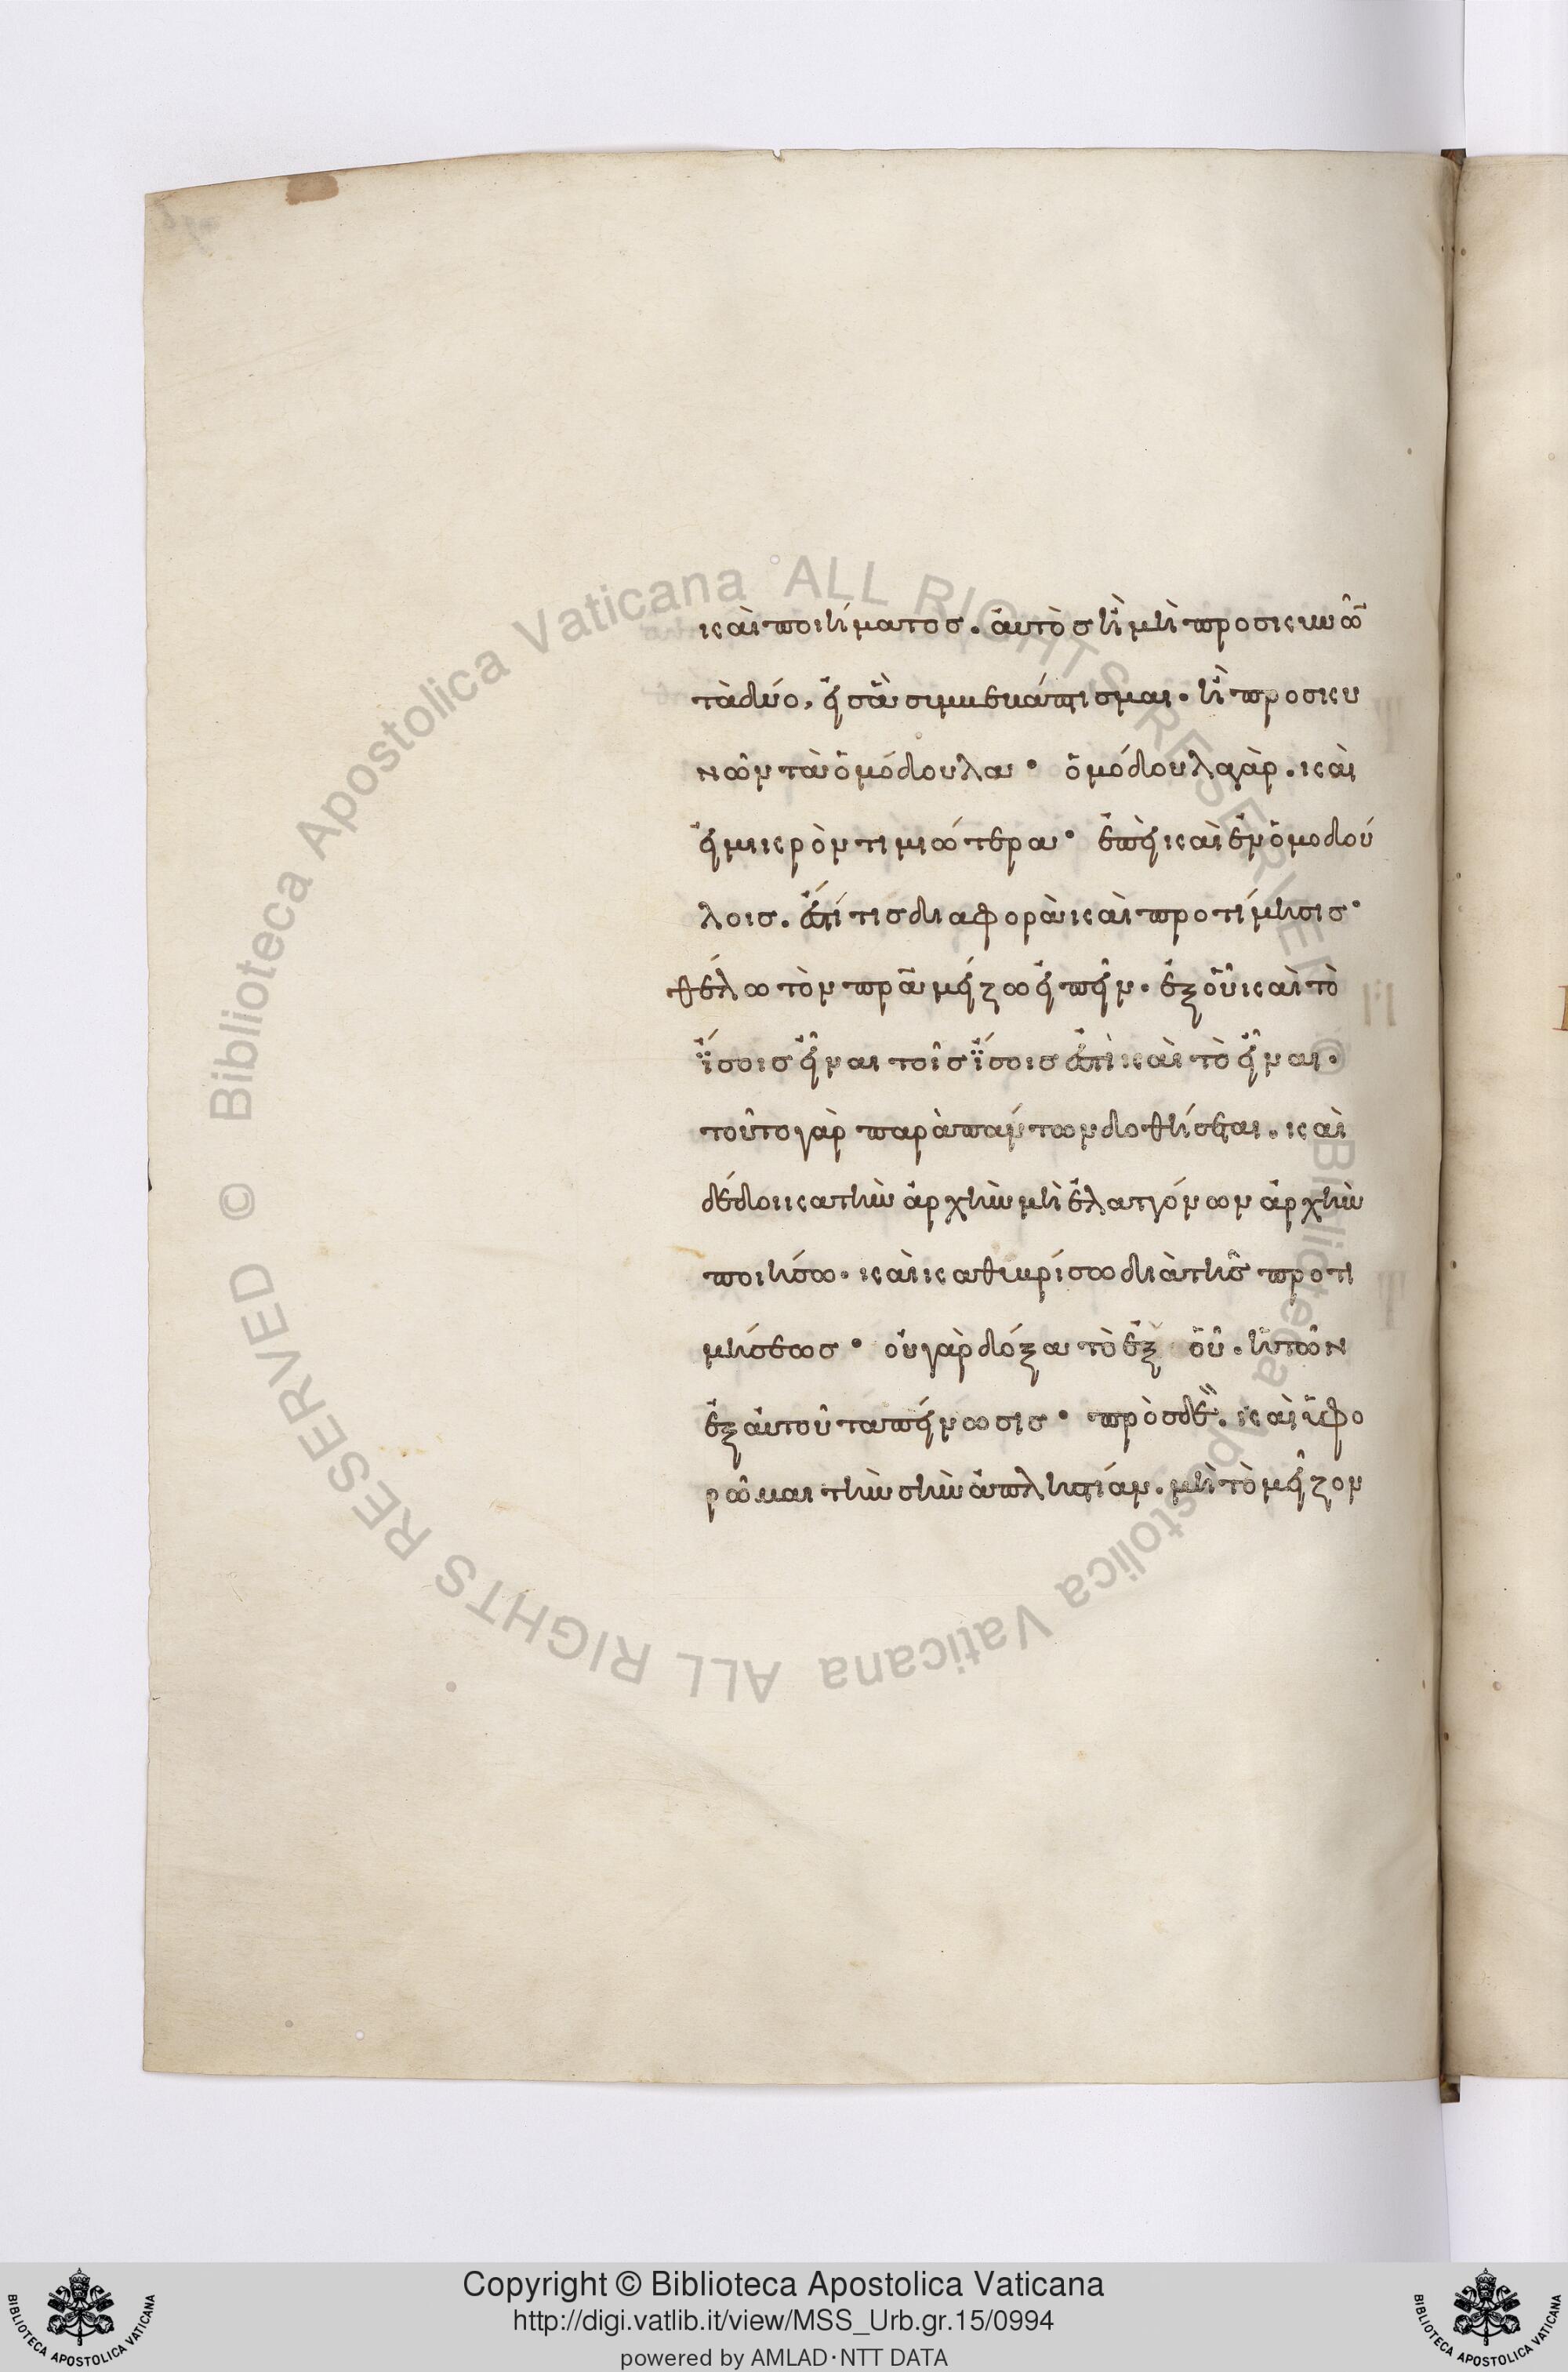 καὶ ποιήματος. αὐτὸς ἢ μὴ προσκυνῶ
τὰ δύο, εἰς ἃ συμβεβάπτισμαι. ἢ προσκυ
νῶν τὰ ὁμόδουλα· ὁμόδουλα γὰρ. καὶ
εἰ μικρὸν τιμιώτερα· ἐπεὶ καὶ ἐν ὁμοδού
λοις. ἐστί τις διαφορὰ καὶ προτίμησις·
θέλω τὸν πρα μείζω εἰπεῖν. ἐξ οὗ καὶ τὸ
ἴσοις εἶναι τοῖς ἴσοις ἐστὶ καὶ τὸ εἶναι.
τοῦτο γὰρ παρὰ πάντων δοθήσεται. καὶ
δέδοικα τὴν ἀρχὴν μὴ ἐλαττόνων ἀρχὴν
ποιήσω. καὶ καθυβρίσω διὰ τῆς προτι
μήσεως· οὐ γὰρ δόξα τὸ ἐξ οὗ. ἡ τῶν
ἐξ αὐτοῦ ταπείνωσις· πρὸς δὲ. καὶ ὑφο
ρῶμαι τὴν σὴν ἀπληστίαν. μὴ τὸ μεῖζον
Copyright © Biblioteca Apostolica Vaticana
http://digi.vatlib.it/view/MSS_Urb.gr.15/0994
powered by AMLAD·NTT DATA
BIBLIOTECA APOSTOLICA VATICANA
BIBLIOTECA APOSTOLICA VATICANA
© Biblioteca Apostolica Vaticana ALL RIGHTS RESERVED
© Biblioteca Apostolica Vaticana ALL RIGHTS RESERVED